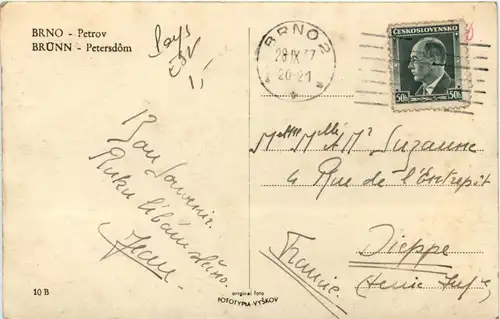 BRNO - Petrov
BRÜNN - Petersdôm
BRNO 2
28.IX.37
20-21
ČESKOSLOVENSKO
50h 50h
Bon Souvenir.
Ruku líbám
Jean
Suzanne
4 Rue de l'Entrepôt
Dieppe
France.
(Seine Inf.)
10 B
original foto
FOTOTYPIA-VYŠKOV